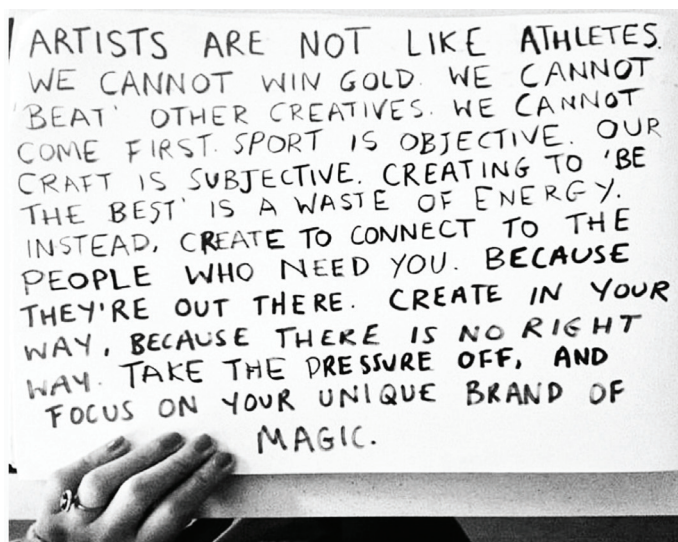 ARTISTS ARE NOT LIKE ATHLETES.
WE CANNOT WIN GOLD. WE CANNOT
'BEAT' OTHER CREATIVES. WE CANNOT
COME FIRST. SPORT IS OBJECTIVE. OUR
CRAFT IS SUBJECTIVE. CREATING TO 'BE
THE BEST' IS A WASTE OF ENERGY.
INSTEAD, CREATE TO CONNECT TO THE
PEOPLE WHO NEED YOU. BECAUSE
THEY'RE OUT THERE. CREATE IN YOUR
WAY, BECAUSE THERE IS NO RIGHT
WAY. TAKE THE PRESSURE OFF, AND
FOCUS ON YOUR UNIQUE BRAND OF
MAGIC.